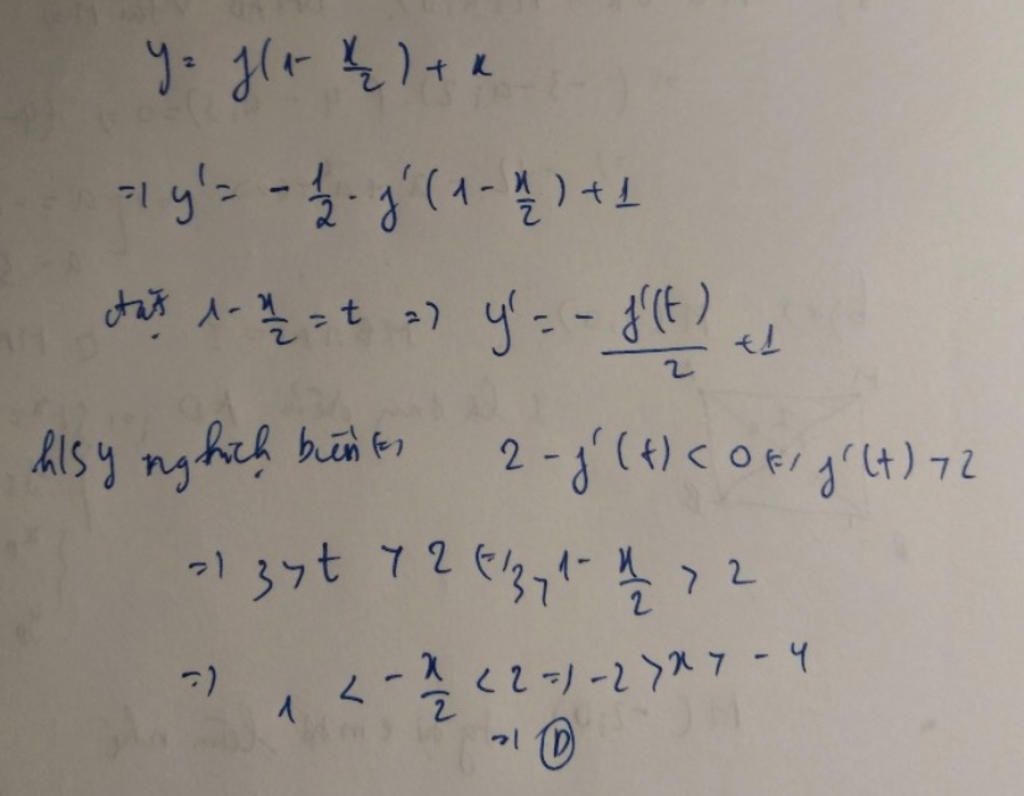 y = f(1 - x/2) + x
=> y' = - 1/2 . f'(1 - x/2) + 1
đặt 1 - x/2 = t => y' = - f'(t)/2 + 1
h/s y nghịch biến <=> 2 - f'(t) < 0 <=> f'(t) > 2
=> 3 > t > 2 <=> 3 > 1 - x/2 > 2
=> 1 < - x/2 < 2 => -2 > x > -4
=> D